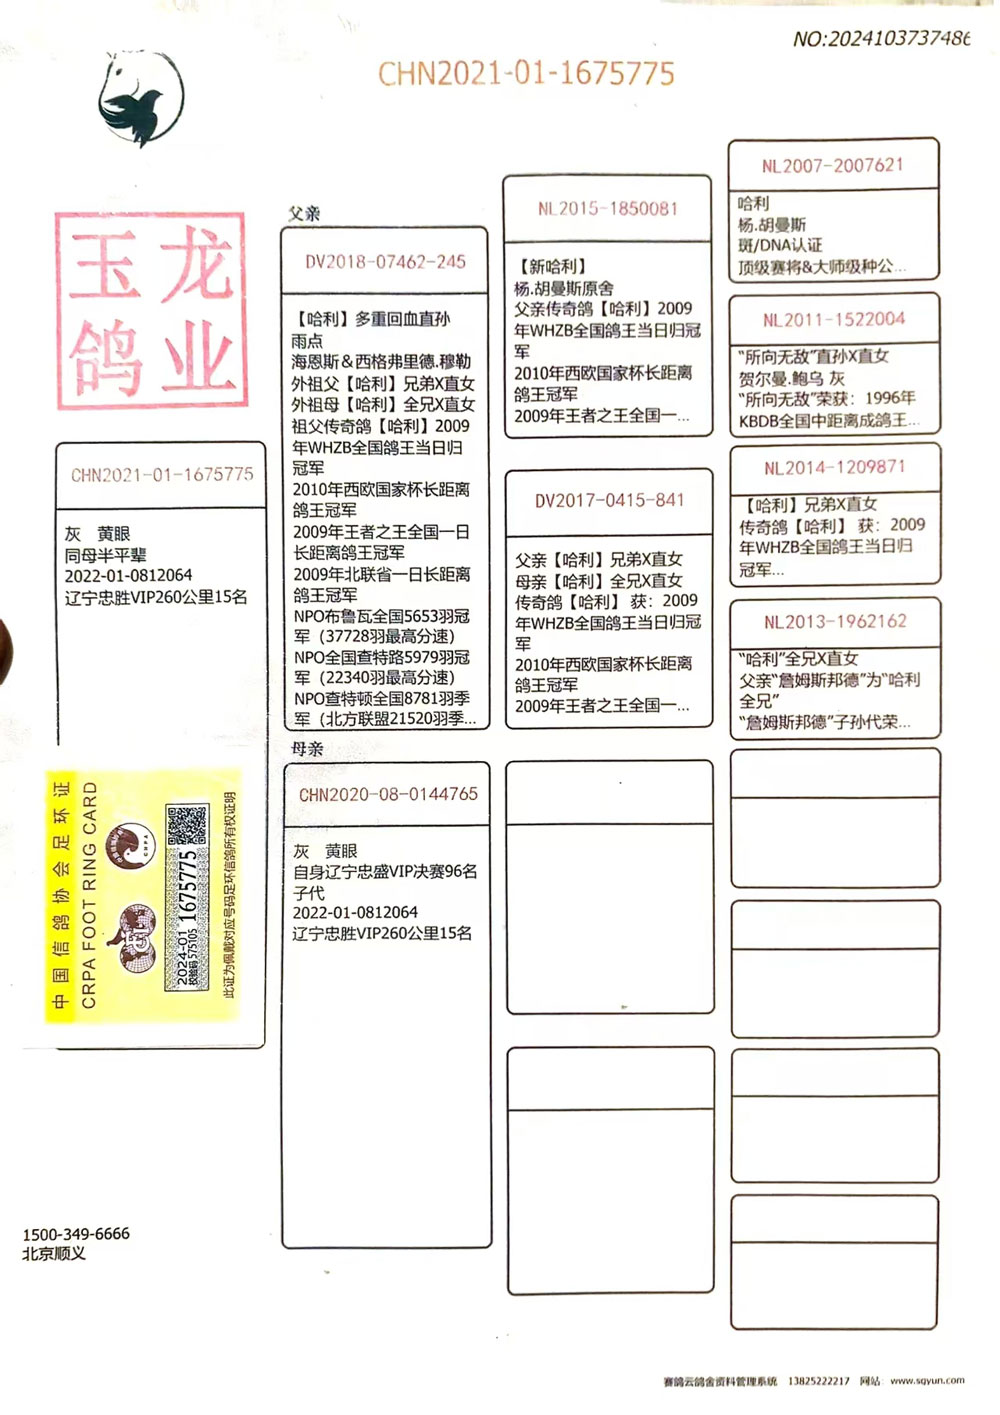 NO:2024103737486
CHN2021-01-1675775
玉龙
鸽业
CHN2021-01-1675775
灰 黄眼
同母半平辈
2022-01-0812064
辽宁忠胜VIP260公里15名
中国信鸽协会足环证
CRPA FOOT RING CARD
2024-01 1675775
校验码 575105
此证为佩戴对应号码足环信鸽所有权证明
1500-349-6666
北京顺义
父亲
DV2018-07462-245
【哈利】多重回血直孙
雨点
海恩斯&西格弗里德.穆勒
外祖父【哈利】兄弟X直女
外祖母【哈利】全兄X直女
祖父传奇鸽【哈利】2009
年WHZB全国鸽王当日归
冠军
2010年西欧国家杯长距离
鸽王冠军
2009年王者之王全国一日
长距离鸽王冠军
2009年北联省一日长距离
鸽王冠军
NPO布鲁瓦全国5653羽冠
军（37728羽最高分速）
NPO全国查特路5979羽冠
军（22340羽最高分速）
NPO查特顿全国8781羽季
军（北方联盟21520羽季...
母亲
CHN2020-08-0144765
灰 黄眼
自身辽宁忠盛VIP决赛96名
子代
2022-01-0812064
辽宁忠胜VIP260公里15名
NL2015-1850081
【新哈利】
杨.胡曼斯原舍
父亲传奇鸽【哈利】2009
年WHZB全国鸽王当日归冠
军
2010年西欧国家杯长距离
鸽王冠军
2009年王者之王全国一...
DV2017-0415-841
父亲【哈利】兄弟X直女
母亲【哈利】全兄X直女
传奇鸽【哈利】 获：2009
年WHZB全国鸽王当日归冠
军
2010年西欧国家杯长距离
鸽王冠军
2009年王者之王全国一...
NL2007-2007621
哈利
杨.胡曼斯
斑/DNA认证
顶级赛将&大师级种公...
NL2011-1522004
“所向无敌”直孙X直女
贺尔曼.鲍乌 灰
“所向无敌”荣获：1996年
KBDB全国中距离成鸽王...
NL2014-1209871
【哈利】兄弟X直女
传奇鸽【哈利】 获：2009
年WHZB全国鸽王当日归
冠军...
NL2013-1962162
“哈利”全兄X直女
父亲“詹姆斯邦德”为“哈利
全兄”
“詹姆斯邦德”子孙代荣...
赛鸽云鸽舍资料管理系统 13825222217 网站：www.sgyun.com